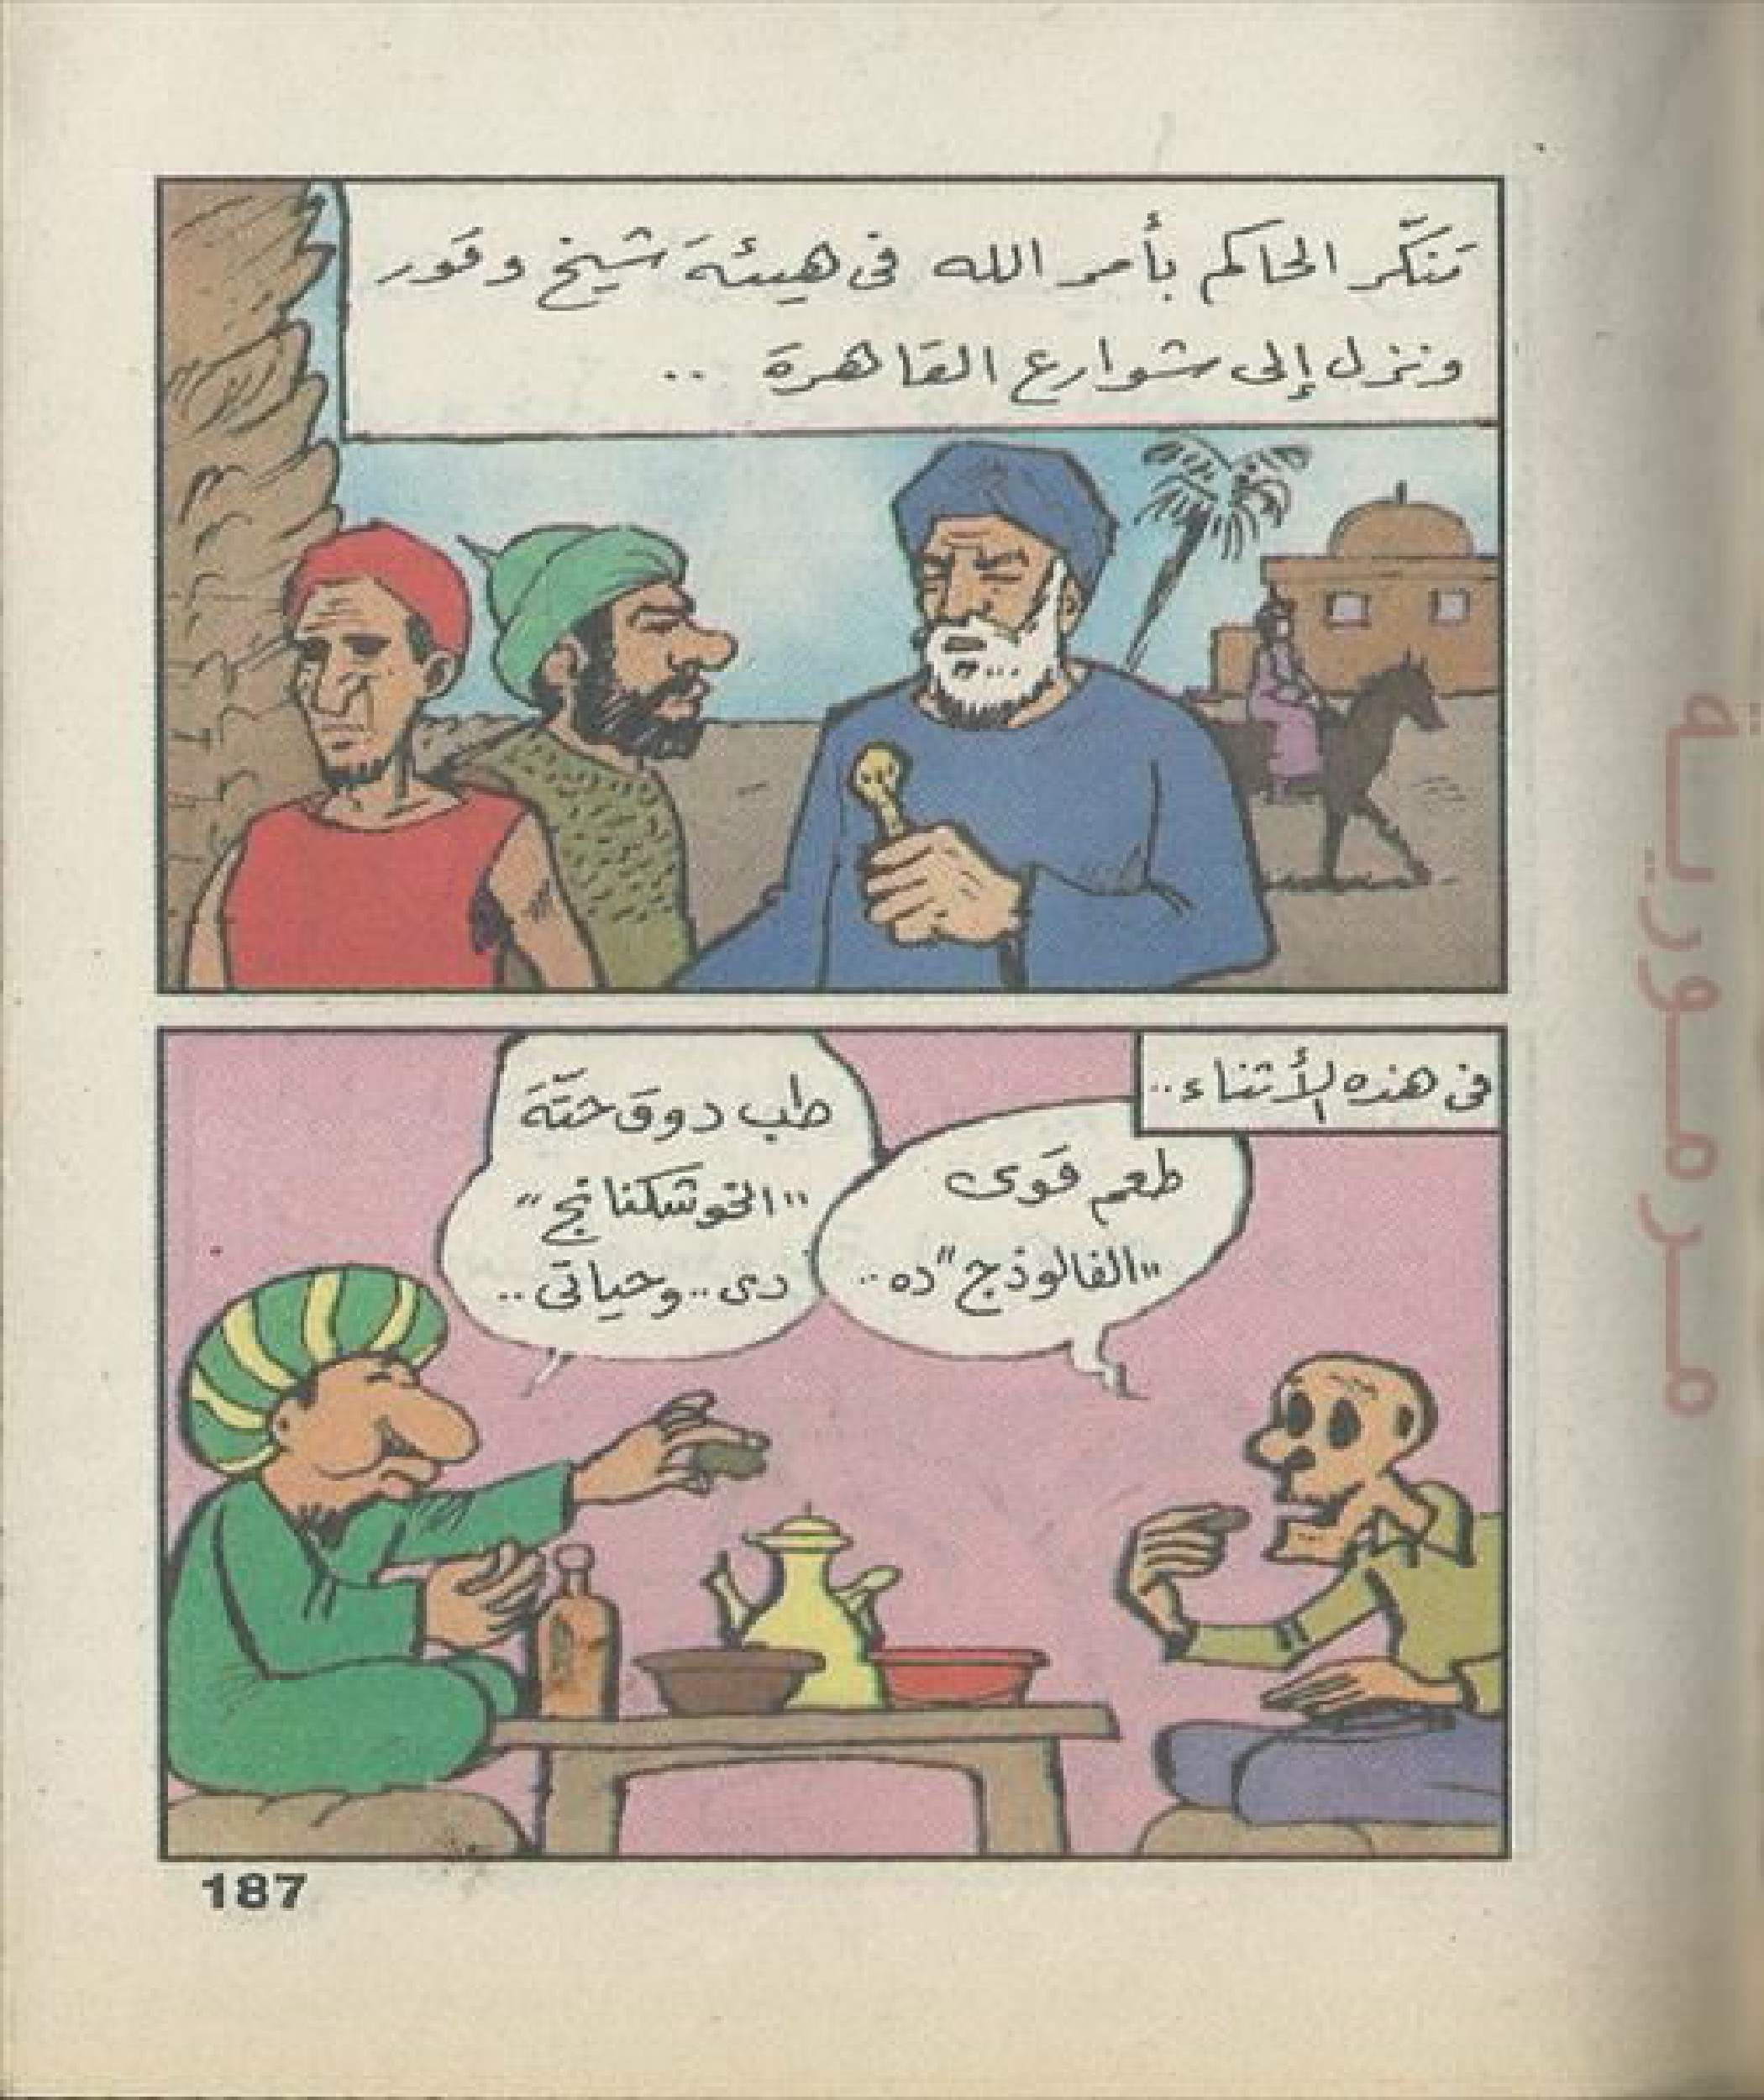 تنكّر الحاكم بأمر الله فى هيئة شيخ وقور
ونزل إلى شوارع القاهرة ..
فى هذه الأثناء ..
طعم قوى
"الفالوذج" ده ..
طب دوق حتّة
"الخوشكنانج"
دى .. وحياتى ..
187
مرمورية